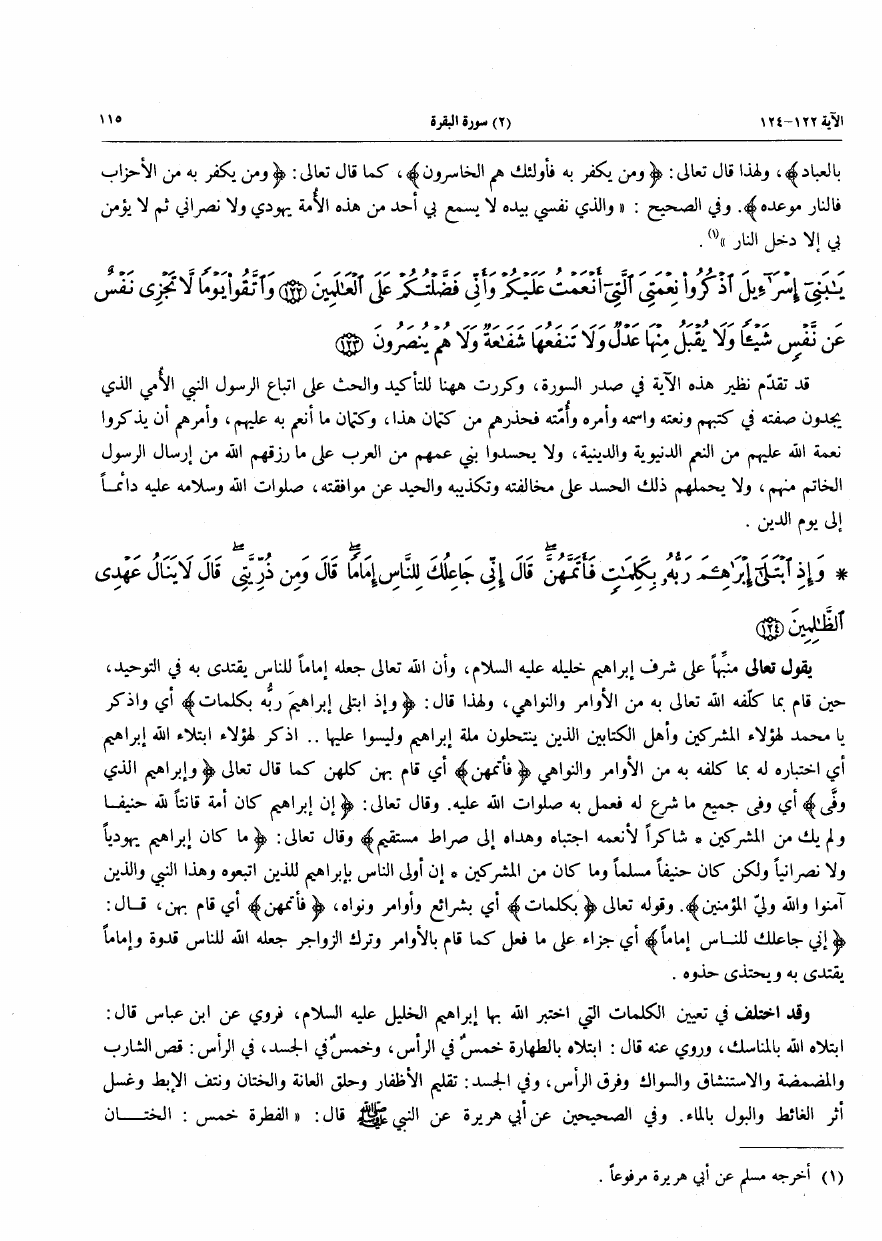 الآية ١٢٢-١٢٤ (٢) سورة البقرة ١١٥
بالعباد﴾، ولهذا قال تعالى: ﴿ ومن يكفر به فأولئك هم الخاسرون﴾، كما قال تعالى: ﴿ ومن يكفر به من الأحزاب
فالنار موعده﴾. وفي الصحيح : « والذي نفسي بيده لا يسمع بي أحد من هذه الأُمة يهودي ولا نصراني ثم لا يؤمن
بي إلا دخل النار »(١) .
يَٰبَنِىٓ إِسْرَٰٓءِيلَ ٱذْكُرُوا۟ نِعْمَتِىَ ٱلَّتِىٓ أَنْعَمْتُ عَلَيْكُمْ وَأَنِّى فَضَّلْتُكُمْ عَلَى ٱلْعَٰلَمِينَ ﴿١٢٢﴾ وَٱتَّقُوا۟ يَوْمًا لَّا تَجْزِى نَفْسٌ
عَن نَّفْسٍ شَيْـًٔا وَلَا يُقْبَلُ مِنْهَا عَدْلٌ وَلَا تَنفَعُهَا شَفَٰعَةٌ وَلَا هُمْ يُنصَرُونَ ﴿١٢٣﴾
قد تقدّم نظير هذه الآية في صدر السورة، وكررت ههنا للتأكيد والحث على اتباع الرسول النبي الأُمي الذي
يجدون صفته في كتبهم ونعته واسمه وأمره وأُمّته فحذرهم من كتمان هذا، وكتمان ما أنعم به عليهم، وأمرهم أن يذكروا
نعمة الله عليهم من النعم الدنيوية والدينية، ولا يحسدوا بني عمهم من العرب على ما رزقهم الله من إرسال الرسول
الخاتم منهم، ولا يحملهم ذلك الحسد على مخالفته وتكذيبه والحيد عن موافقته، صلوات الله وسلامه عليه دائماً
إلى يوم الدين .
* وَإِذِ ٱبْتَلَىٰٓ إِبْرَٰهِـۧمَ رَبُّهُۥ بِكَلِمَٰتٍ فَأَتَمَّهُنَّ ۖ قَالَ إِنِّى جَاعِلُكَ لِلنَّاسِ إِمَامًا ۖ قَالَ وَمِن ذُرِّيَّتِى ۖ قَالَ لَا يَنَالُ عَهْدِى
ٱلظَّٰلِمِينَ ﴿١٢٤﴾
يقول تعالى منبِّهاً على شرف إبراهيم خليله عليه السلام، وأن الله تعالى جعله إماماً للناس يقتدى به في التوحيد،
حين قام بما كلّفه الله تعالى به من الأوامر والنواهي، ولهذا قال: ﴿ وإذ ابتلى إبراهيمَ ربُّه بكلمات﴾ أي واذكر
يا محمد لهؤلاء المشركين وأهل الكتابين الذين ينتحلون ملة إبراهيم وليسوا عليها .. اذكر لهؤلاء ابتلاء الله إبراهيم
أي اختباره له بما كلفه به من الأوامر والنواهي ﴿ فأتمهن﴾ أي قام بهن كلهن كما قال تعالى ﴿ وإبراهيم الذي
وفَّى﴾ أي وفى جميع ما شرع له فعمل به صلوات الله عليه. وقال تعالى: ﴿ إن إبراهيم كان أمة قانتاً لله حنيفـا
ولم يك من المشركين * شاكراً لأنعمه اجتباه وهداه إلى صراط مستقيم﴾ وقال تعالى: ﴿ ما كان إبراهيم يهودياً
ولا نصرانياً ولكن كان حنيفاً مسلماً وما كان من المشركين * إن أولى الناس بإبراهيم للذين اتبعوه وهذا النبي والذين
آمنوا والله وليّ المؤمنين﴾. وقوله تعالى ﴿ بكلمات﴾ أي بشرائع وأوامر ونواه، ﴿ فأتمهن﴾ أي قام بهن، قـال:
﴿ إني جاعلك للنـاس إماماً﴾ أي جزاء على ما فعل كما قام بالأوامر وترك الزواجر جعله الله للناس قدوة وإماماً
يقتدى به ويحتذى حذوه .
وقد اختلف في تعيين الكلمات التي اختبر الله بها إبراهيم الخليل عليه السلام، فروي عن ابن عباس قال:
ابتلاه الله بالمناسك، وروي عنه قال : ابتلاه بالطهارة خمسٌ في الرأس، وخمسٌ في الجسد، في الرأس : قص الشارب
والمضمضة والاستنشاق والسواك وفرق الرأس، وفي الجسد: تقليم الأظفار وحلق العانة والختان ونتف الإبط وغسل
أثر الغائط والبول بالماء. وفي الصحيحين عن أبي هريرة عن النبي ﷺ قال: « الفطرة خمس : الختـــان
(١) أخرجه مسلم عن أبي هريرة مرفوعاً .